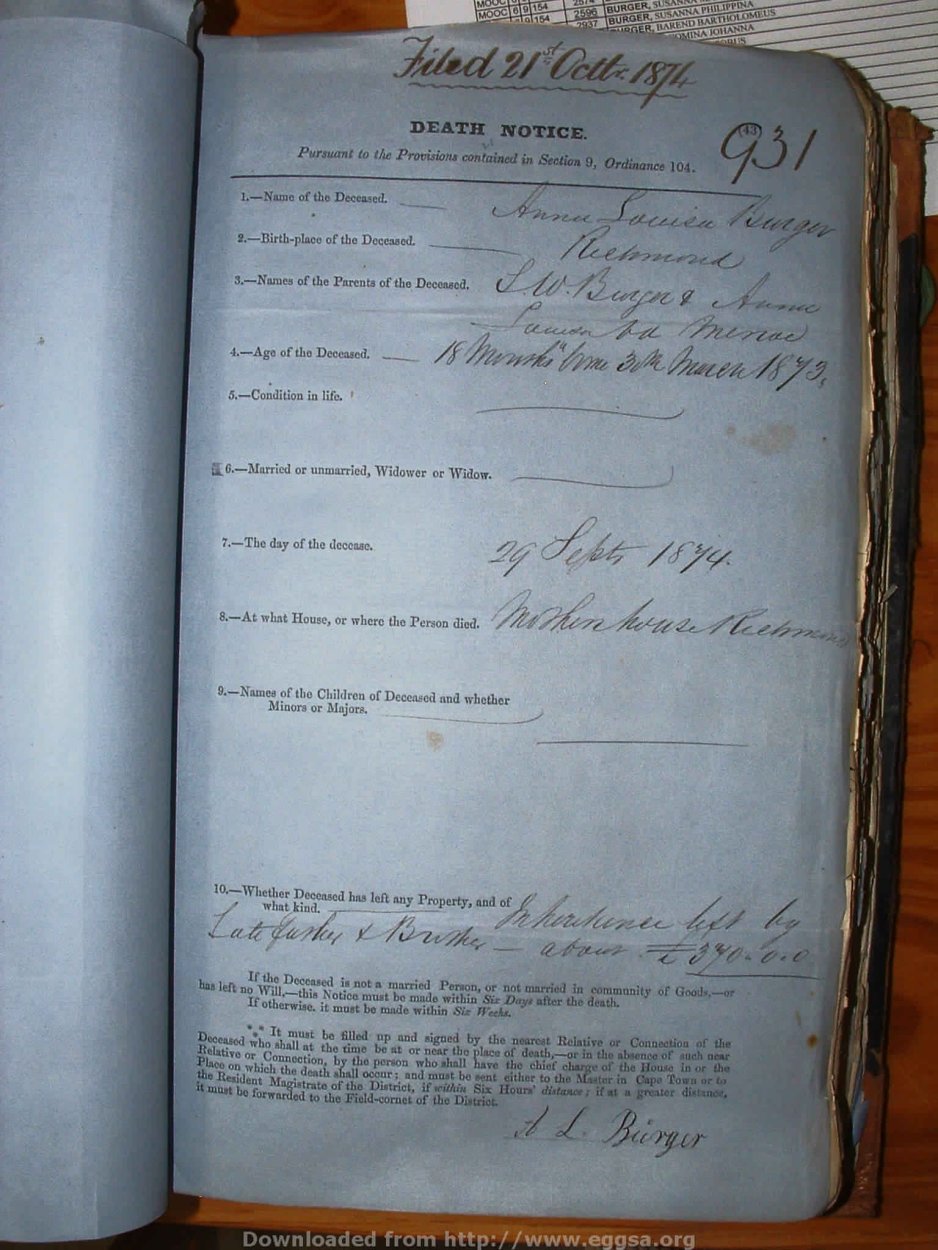 MOOC 6 9 154 2574 BURGER, SUSANNA
MOOC 6 9 154 2596 BURGER, SUSANNA PHILIPPINA
9 154 2937 BURGER, BAREND BARTHOLOMEUS
JOHANNA
Filed 21st Octbr. 1874
DEATH NOTICE.
(43)
931
Pursuant to the Provisions contained in Section 9, Ordinance 104.
1.—Name of the Deceased. Anna Louisa Burger
2.—Birth-place of the Deceased. Richmond
3.—Names of the Parents of the Deceased. S. W. Burger & Anna
Louisa
4.—Age of the Deceased. 18 Months born 30th March 1873.
5.—Condition in life.
6.—Married or unmarried, Widower or Widow.
7.—The day of the decease. 29 Septr 1874.
8.—At what House, or where the Person died. Mothers house Richmond
9.—Names of the Children of Deceased and whether
Minors or Majors.
10.—Whether Deceased has left any Property, and of
what kind. Inheritance left by
Late father & Brother — about £ 370.0.0
If the Deceased is not a married Person, or not married in community of Goods,—or
has left no Will,—this Notice must be made within Six Days after the death.
If otherwise, it must be made within Six Weeks.
*** It must be filled up and signed by the nearest Relative or Connection of the
Deceased who shall at the time be at or near the place of death,—or in the absence of such near
Relative or Connection, by the person who shall have the chief charge of the House in or the
Place on which the death shall occur; and must be sent either to the Master in Cape Town or to
the Resident Magistrate of the District, if within Six Hours' distance; if at a greater distance,
it must be forwarded to the Field-cornet of the District.
A L. Burger
Downloaded from http://www.eggsa.org